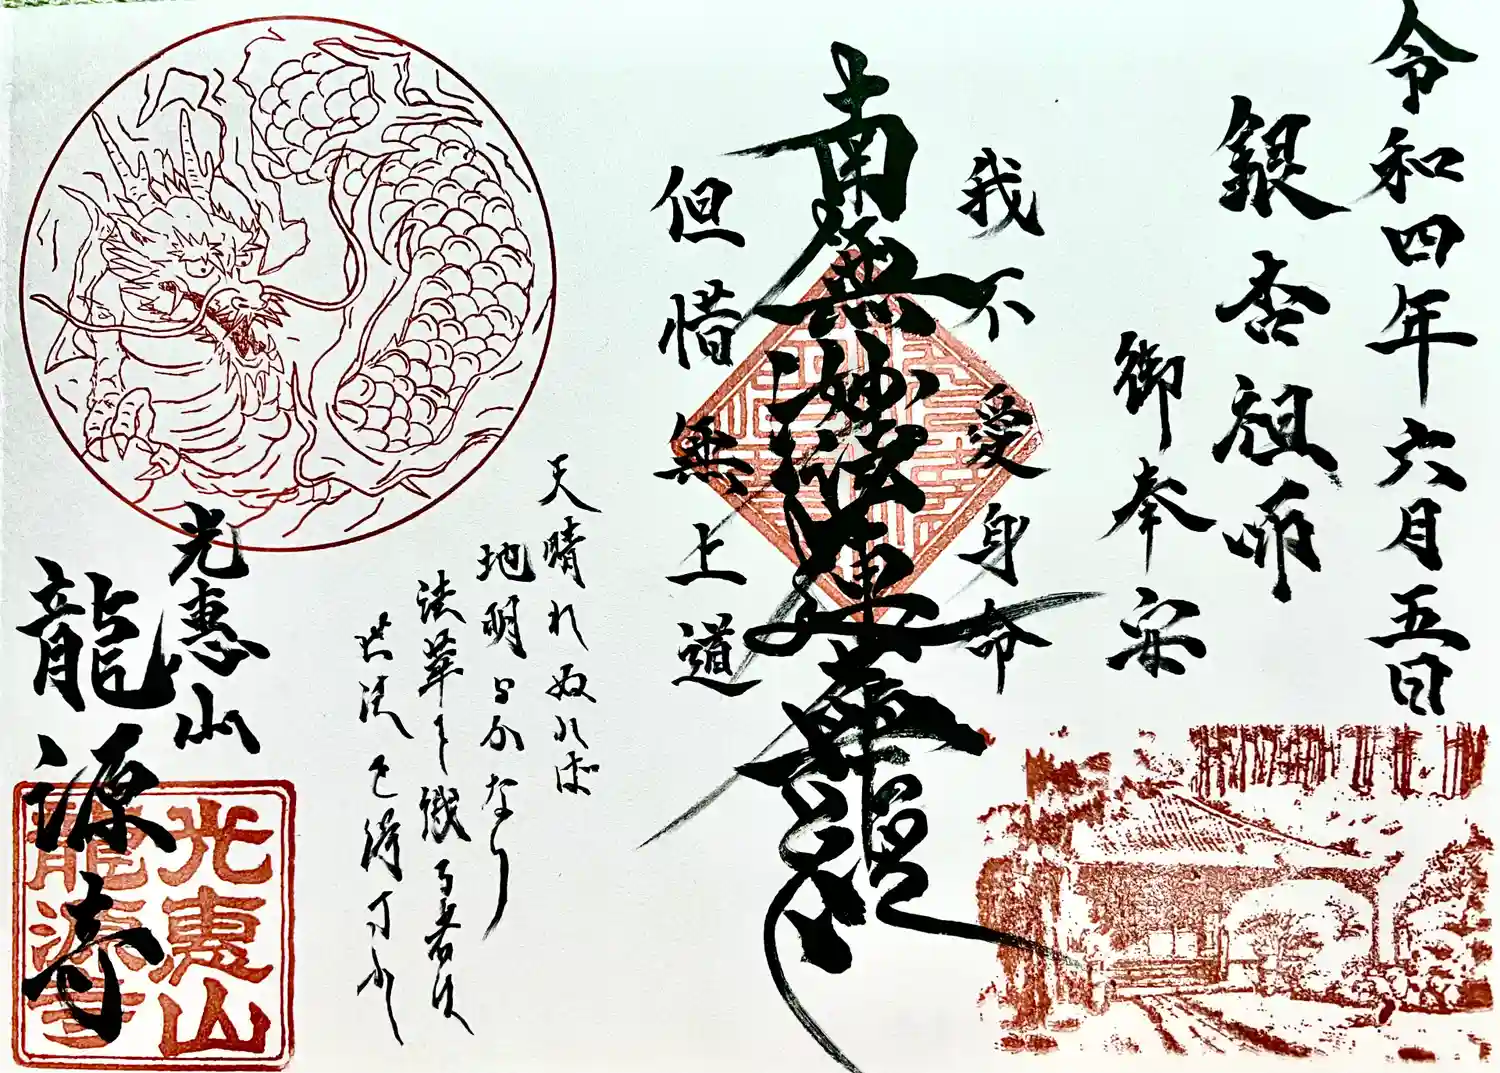 令和四年六月五日
銀杏祖師
御奉安
我不愛身命
南無妙法蓮華経
但惜無上道
天晴れぬれば
地明らかなり
法華を識る者は
世法を得可きか
光惠山
龍源寺
光惠山
龍源寺